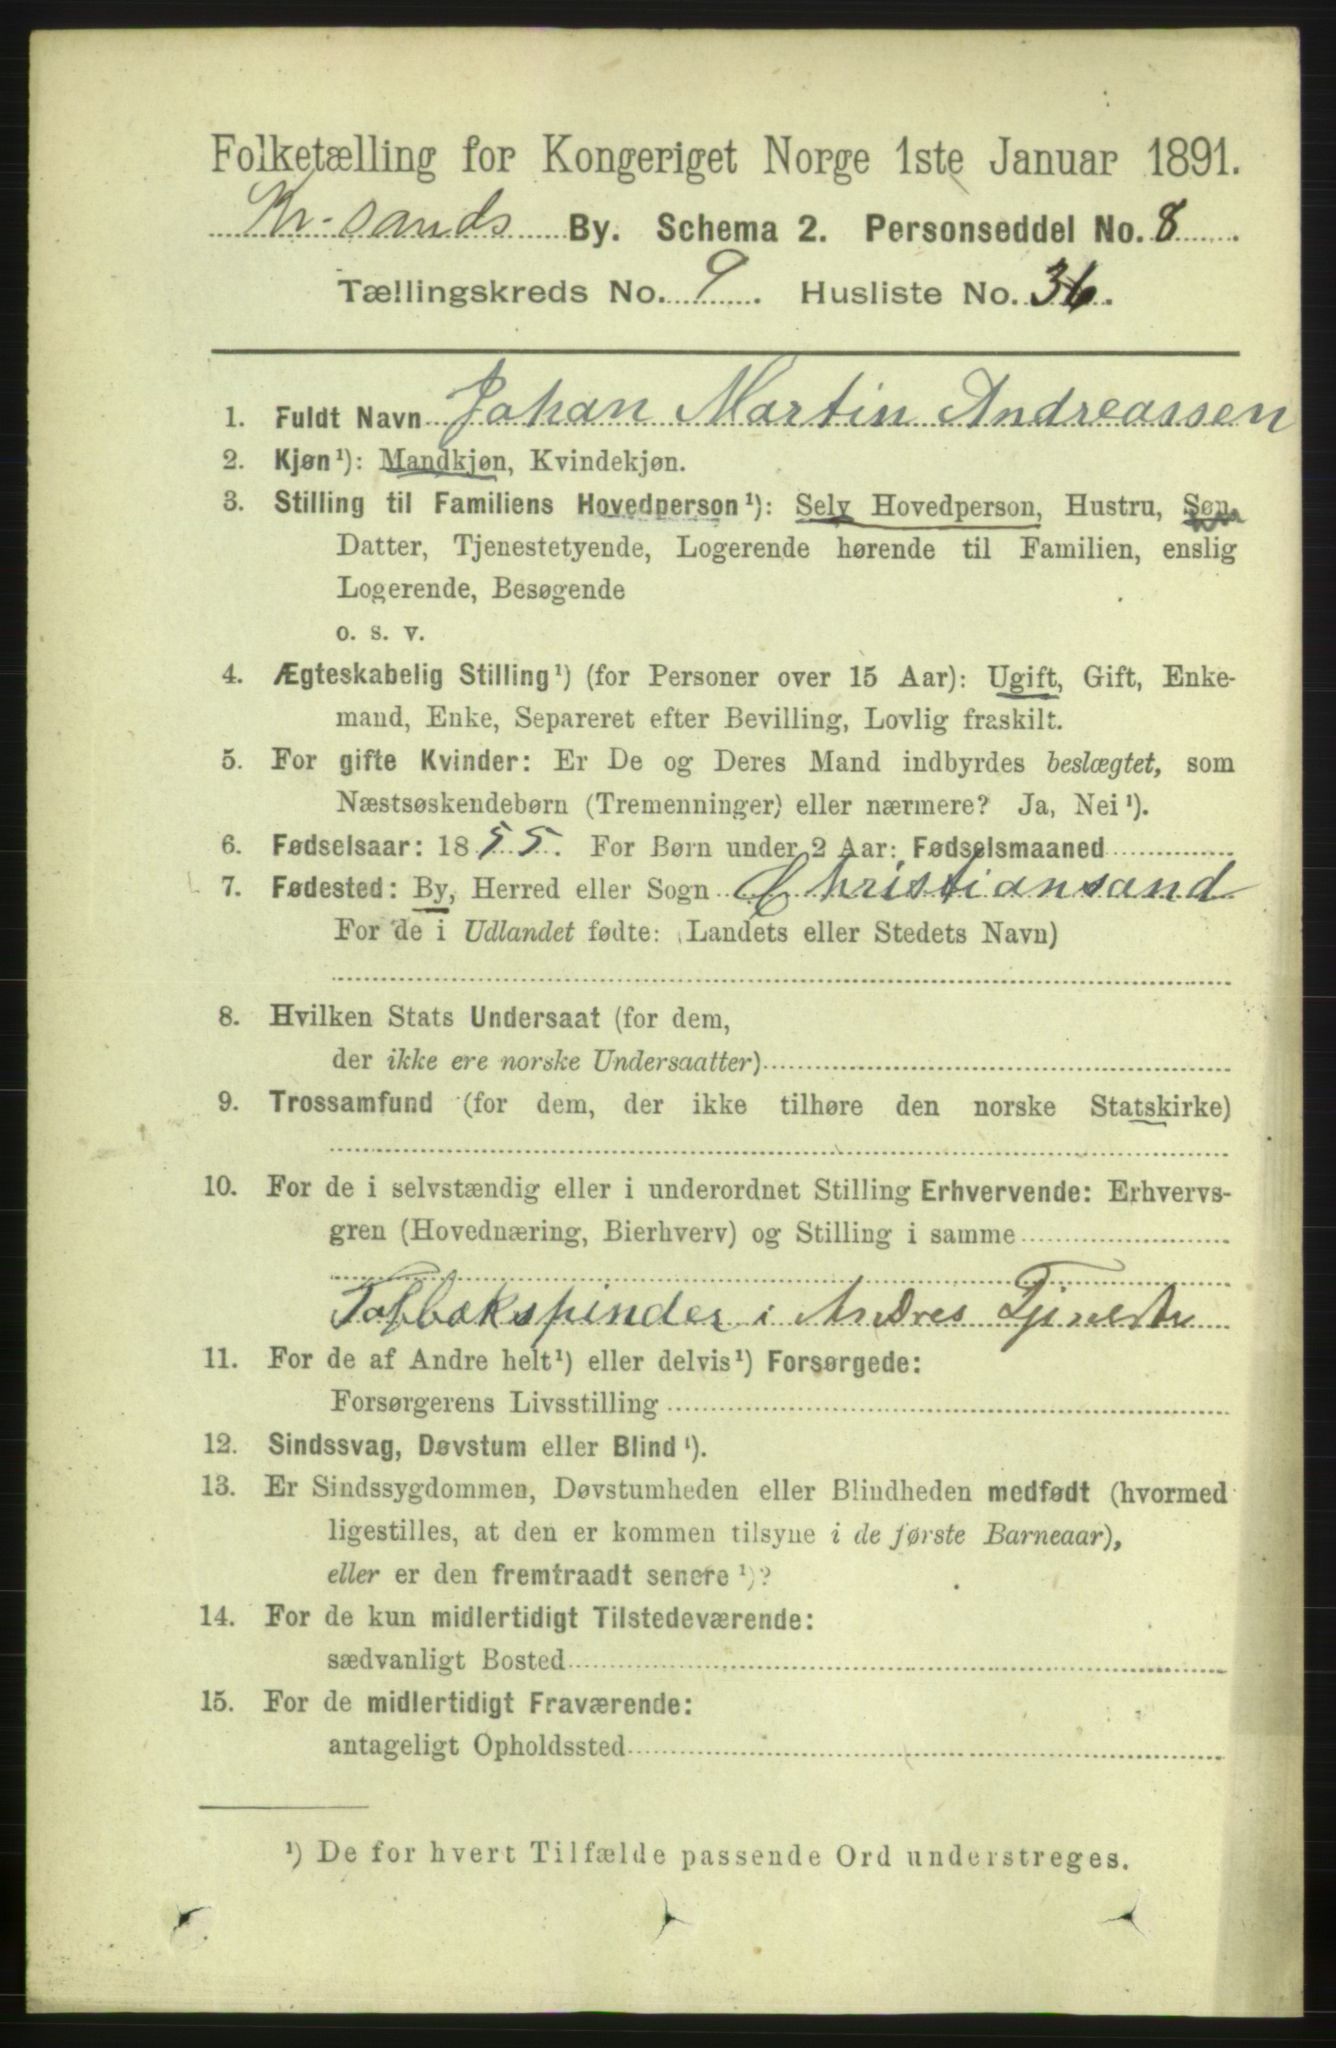 Folketælling for Kongeriget Norge 1ste Januar 1891.
Kr.sands By. Schema 2. Personseddel No. 8
Tællingskreds No. 9. Husliste No. 36.
1. Fuldt Navn Johan Martin Andreassen
2. Kjøn¹): Mandkjøn, Kvindekjøn.
3. Stilling til Familiens Hovedperson¹): Selv Hovedperson, Hustru, Søn,
Datter, Tjenestetyende, Logerende hørende til Familien, enslig
Logerende, Besøgende
o. s. v.
4. Ægteskabelig Stilling¹) (for Personer over 15 Aar): Ugift, Gift, Enke-
mand, Enke, Separeret efter Bevilling, Lovlig fraskilt.
5. For gifte Kvinder: Er De og Deres Mand indbyrdes beslægtet, som
Næstsøskendebørn (Tremenninger) eller nærmere? Ja, Nei¹).
6. Fødselsaar: 1855. For Børn under 2 Aar: Fødselsmaaned
7. Fødested: By, Herred eller Sogn Christiansand
For de i Udlandet fødte: (Landets eller Stedets Navn)
8. Hvilken Stats Undersaat (for dem,
der ikke ere norske Undersaatter)
9. Trossamfund (for dem, der ikke tilhøre den norske Statskirke)
10. For de i selvstændig eller i underordnet Stilling Erhvervende: Erhvervs-
gren (Hovednæring, Bierhverv) og Stilling i samme
Tobbakspinder i Andres Tjeneste
11. For de af Andre helt¹) eller delvis¹) Forsørgede:
Forsørgerens Livsstilling
12. Sindssvag, Døvstum eller Blind¹).
13. Er Sindssygdommen, Døvstumheden eller Blindheden medfødt (hvormed
ligestilles, at den er kommen tilsyne i de første Barneaar),
eller er den fremtraadt senere¹)?
14. For de kun midlertidigt Tilstedeværende:
sædvanligt Bosted
15. For de midlertidigt Fraværende:
antageligt Opholdssted
¹) De for hvert Tilfælde passende Ord understreges.